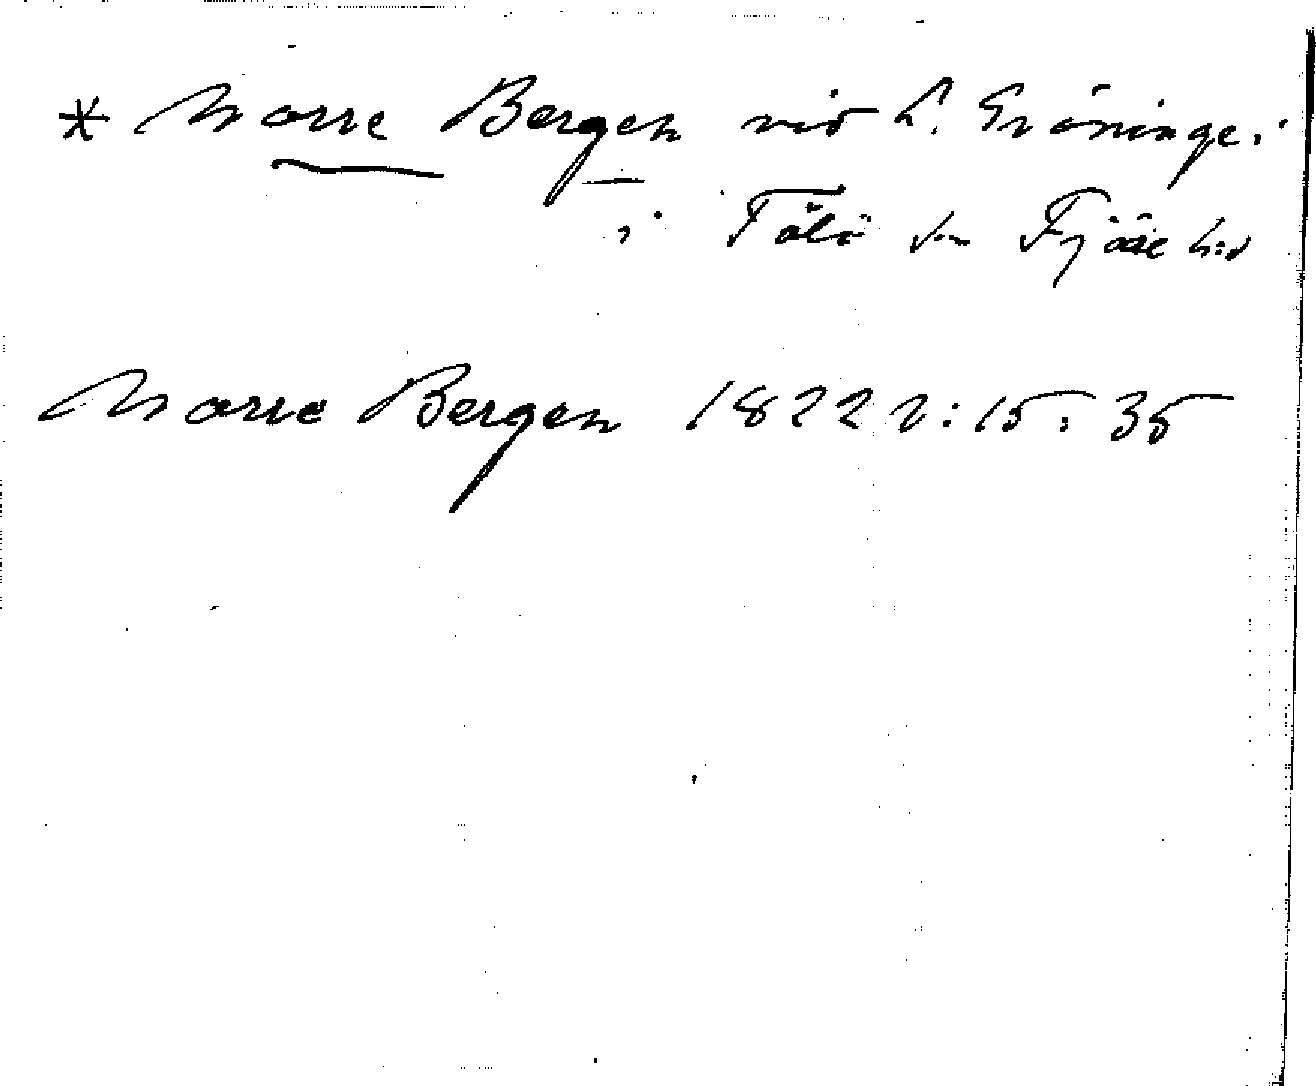 * Norre Bergen vid L. Gröninge.
i Tölö sn Fjäre h:d
Norre Bergen 1822 2:15:35